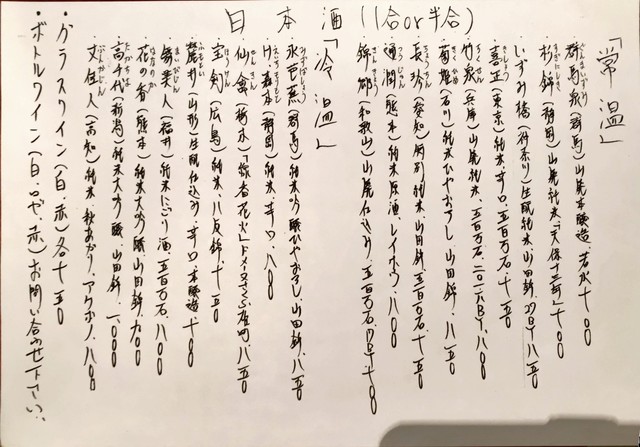 日本酒(1合or半合)
「常温」
・群馬泉(群馬)山廃本醸造、若水 十〇〇
・杉錦(静岡)山廃純米「天保十三年」十〇〇
・いずみ橋(神奈川)生酛純米、山田錦、27BY、八五〇
・喜正(東京)純米、辛口、十五〇
・竹泉(兵庫)山廃純米、五百万石、二〇一六BY、八〇〇
・菊姫(石川)純米ひやおろし、山田錦、八五〇
・長珍(愛知)特別純米、山田錦、五百万石、十五〇
・通潤(熊本)純米原酒、レイホウ、八〇〇
・錦郷(和歌山)山廃仕込み、五百万石、27BY、十〇〇
「冷温」
・水芭蕉(群馬)純米吟醸ひやおろし、山田錦、八五〇
・竹森本(静岡)純米、辛口、八〇〇
・仙禽(栃木)「線香花火」ドメーヌさくら、雄町、八五〇
・宝剣(広島)純米、八反錦、十五〇
・麓井(山形)生酛仕込み、辛口、本醸造、十〇〇
・舞美人(福井)純米にごり酒、五百万石、八〇〇
・花の香(熊本)純米大吟醸、山田錦、九〇〇
・高千代(新潟)純米大吟醸、山田錦、一、〇〇〇
・文佳人(高知)純米、秋あがり、アケボノ、八〇〇
・グラスワイン(白・赤)各十五〇
・ボトルワイン(白・ロゼ・赤)お問い合わせ下さい。